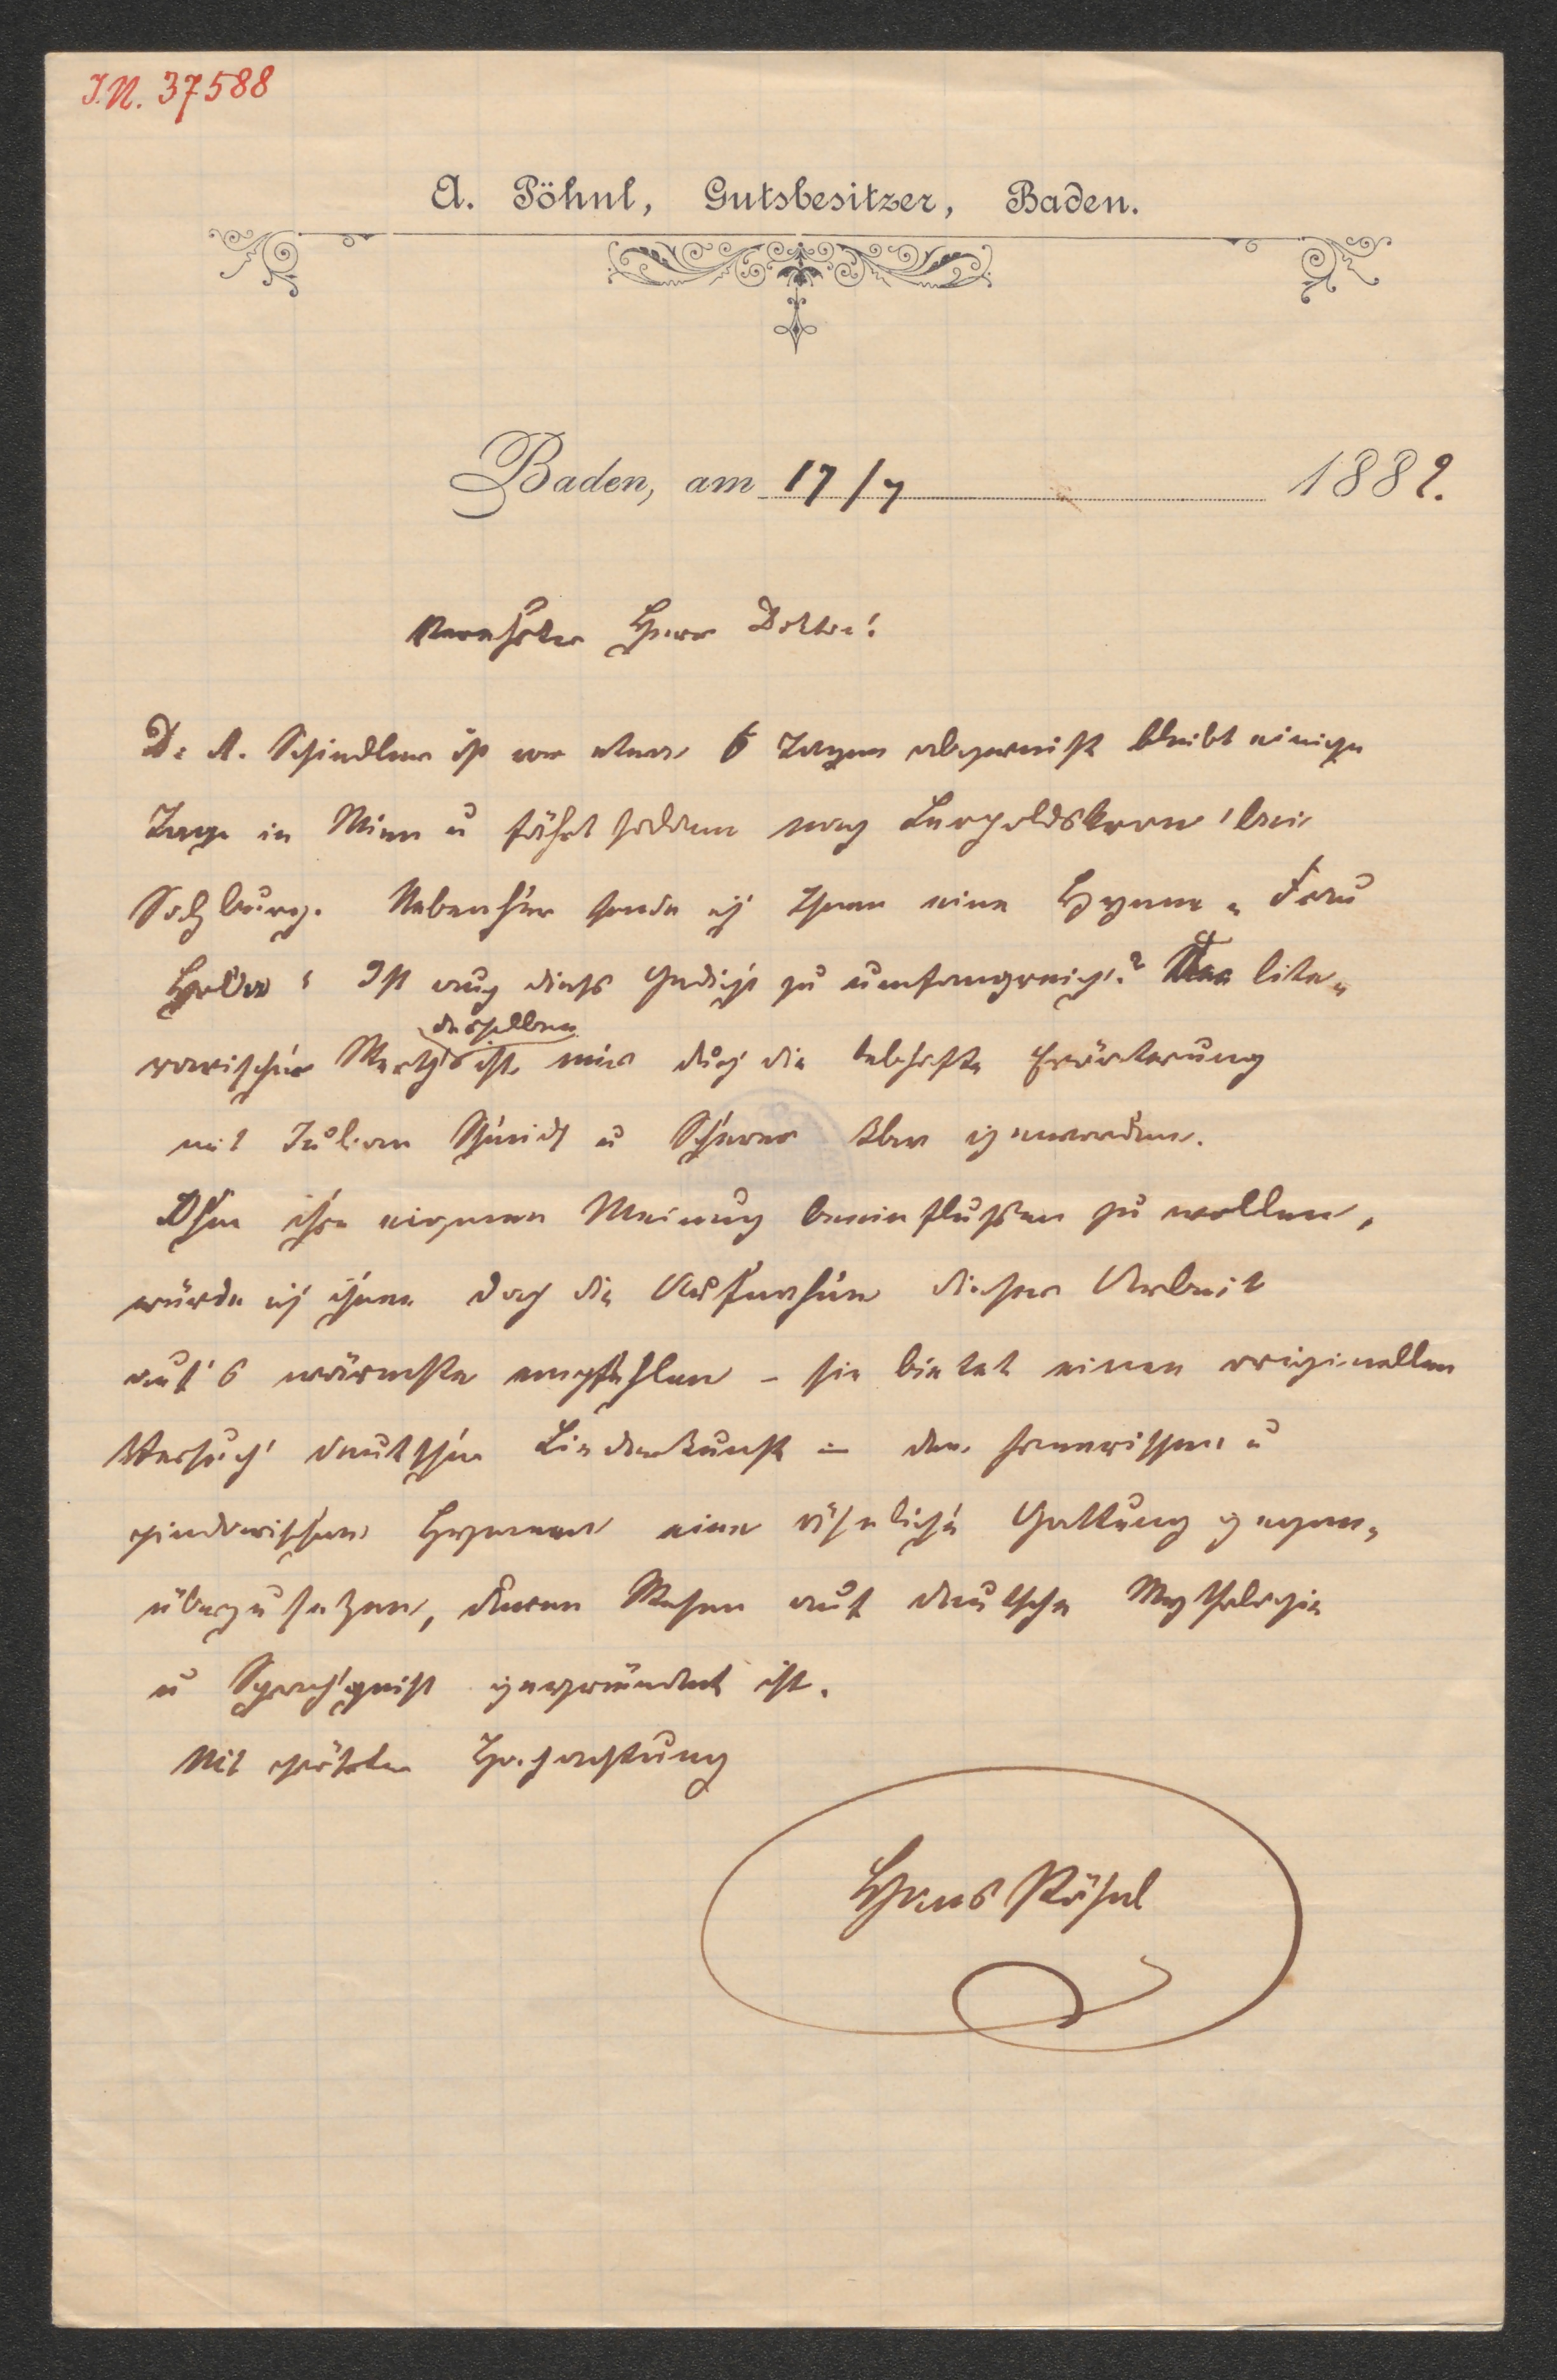 I.N. 37588
A. Pöhnl, Gutsbesitzer, Baden.
Baden, am 17/7 1889.
Verehrter Herr Doktor!
Dr A. Schindler ist vor etwa 6 Tagen abgereist bleibt einige
Tage in Wien u fährt sodann nach Leopoldskron bei
Salzburg. Nebenher sende ich Ihnen eine Hymne „Frau
Holda“ Ist auch dieses Gedicht zu umfangreich? Der lite-
desselben
rarischer Werth ist mir durch die lebhafte Erörterung
mit Julian Schmidt u Scherer klar geworden.
Ohne ihre eigenen Meinung beeinflußen zu wollen,
würde ich ihnen doch die Aufnahme dieser Arbeit
auf's wärmste empfehlen – sie bietet einen originellen
Versuch deutscher Liederkunst – den homerischen u
pindarischen Hymnen eine ähnliche Gattung gegen-
überzusetzen, deren Wesen auf deutsche Mythologie
u Sprachgeist gegründet ist.
Mit Hochachtung
Hans Pöhnl